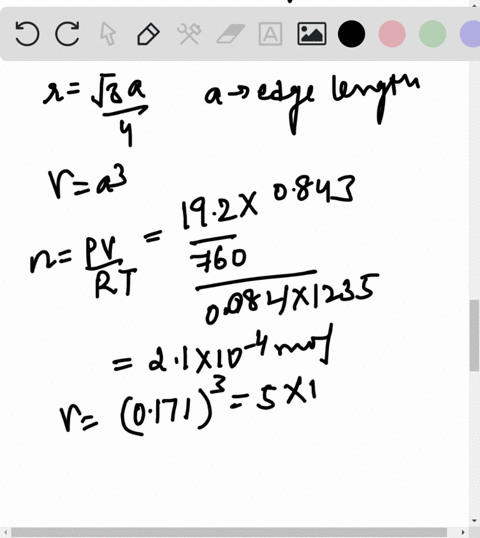 r = √3a/4 a → edge length
V = a³
n = PV/RT = 19.2/760 × 0.843 / 0.084 × 1235
= 2.1 × 10⁻⁴ mol
V = (0.171)³ = 5 × 1